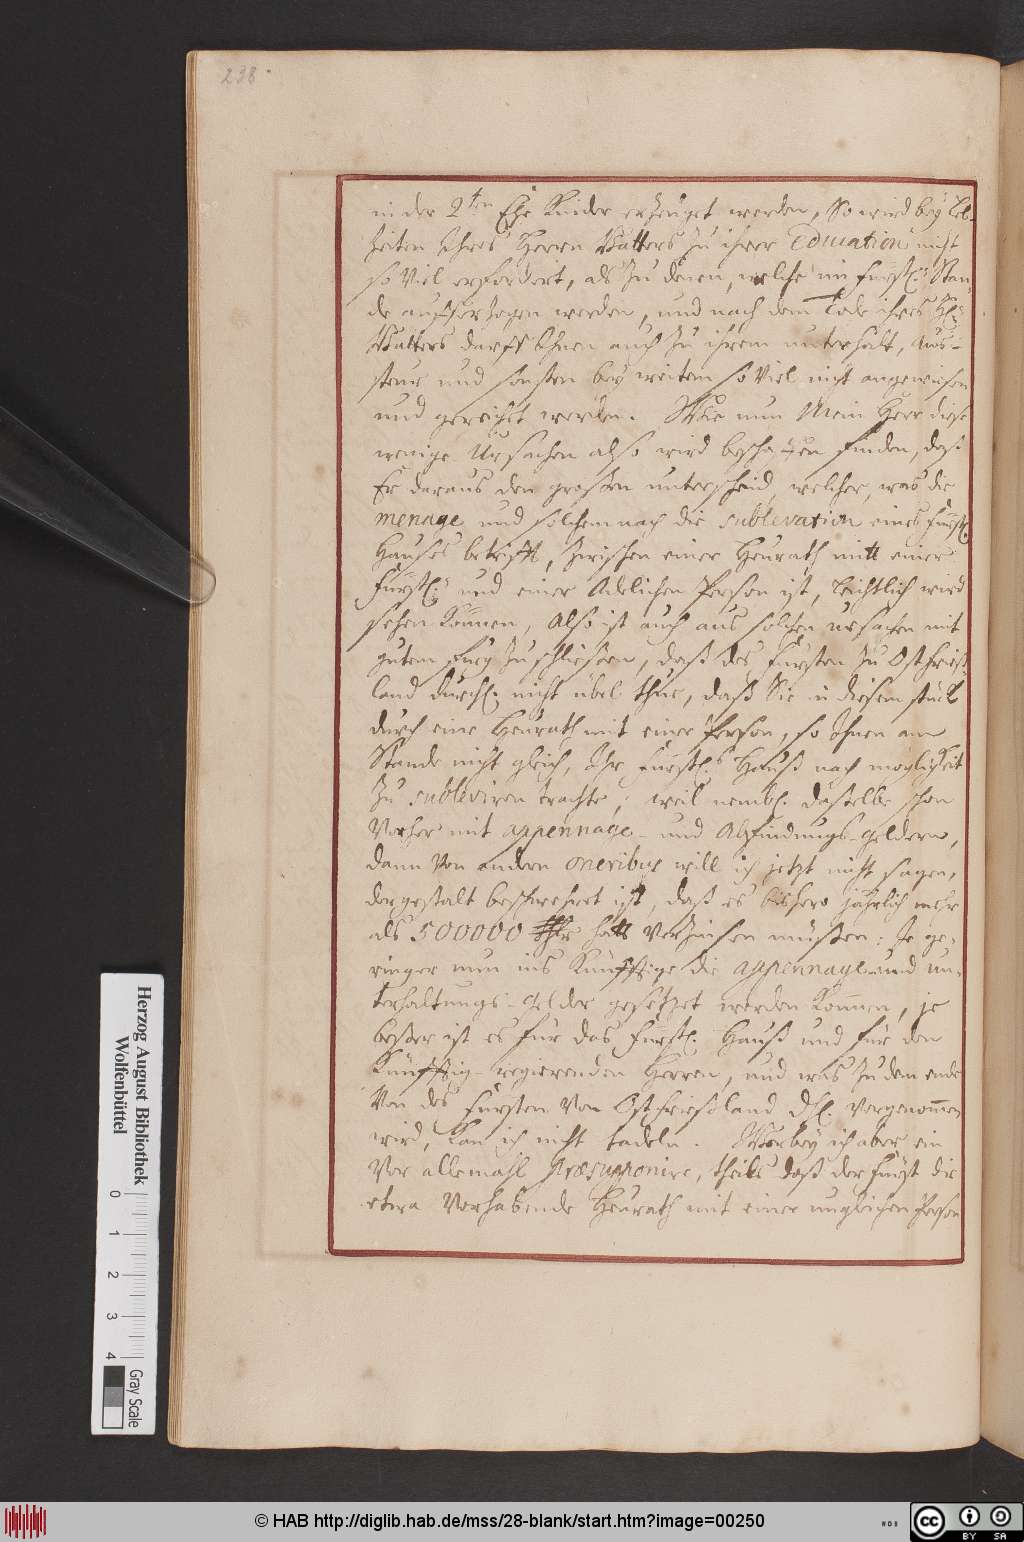 238.
in der 2ten Ehe Kinder erzeuget werden, So wird bey Leb-
zeiten Ihres Herrn Vatters zu ihrer Education nicht
so viel erfordert, als zu denen, welche im Fürstl. Stan-
de aufferzogen werden, und nach dem Tode ihres H.
Vatters darff Ihnen auch zu ihrem unterhalt, Aus-
steur und sonsten bey weitem so viel nicht angewiesen
und gereichet werden. Wie nun Mein Herr diese
wenige Ursachen also wird beschaffen finden, daß
Er daraus den grossen unterscheid, welcher, was die
menage und solchemnach die sublevation eines Fürstl.
Hauses betrifft, zwischen einer Heurath mitt einer
Fürstl. und einer Adelichen Person ist, leichtlich wird
sehen können, Also ist auch aus solchen ursachen mit
gutem fug zu schliessen, daß des Fürsten zu Ostfrieß-
land Durchl. nicht übel thue, daß Sie in diesem stück
durch eine Heurath mit einer Person, so Ihnen am
Stande nicht gleich, Ihr Fürstl. Hauß nach möglichkeit
zu subleviren trachte, weil nembl. dasselbe schon
vorher mit appennage- und Abfindungs-geldern,
dann von andern oneribus will ich jetzt nicht sagen,
dergestalt beschwehret ist, daß es bishero jährlich mehr
als 500000 Thlr hatt verzinsen müssen: Je ge-
ringer nun ins künfftige die appennage- und un-
terhaltungs-gelder gesetzet werden können, je
besser ist es für das Fürstl. Hauß und für den
künfftig-regierenden Herren, und was zu dem ende
von des Fürsten von Ostfrießland Dhl. vorgenommen
wird, kan ich nicht tadeln. Worbey ich aber ein
vor allemahl præsupponire, theils daß der Fürst die
etwa vorhabende Heurath mit einer ungleichen Person
Herzog August Bibliothek
Wolfenbüttel
0 1 2 3 4
Gray Scale
© HAB http://diglib.hab.de/mss/28-blank/start.htm?image=00250
WDB
cc BY SA